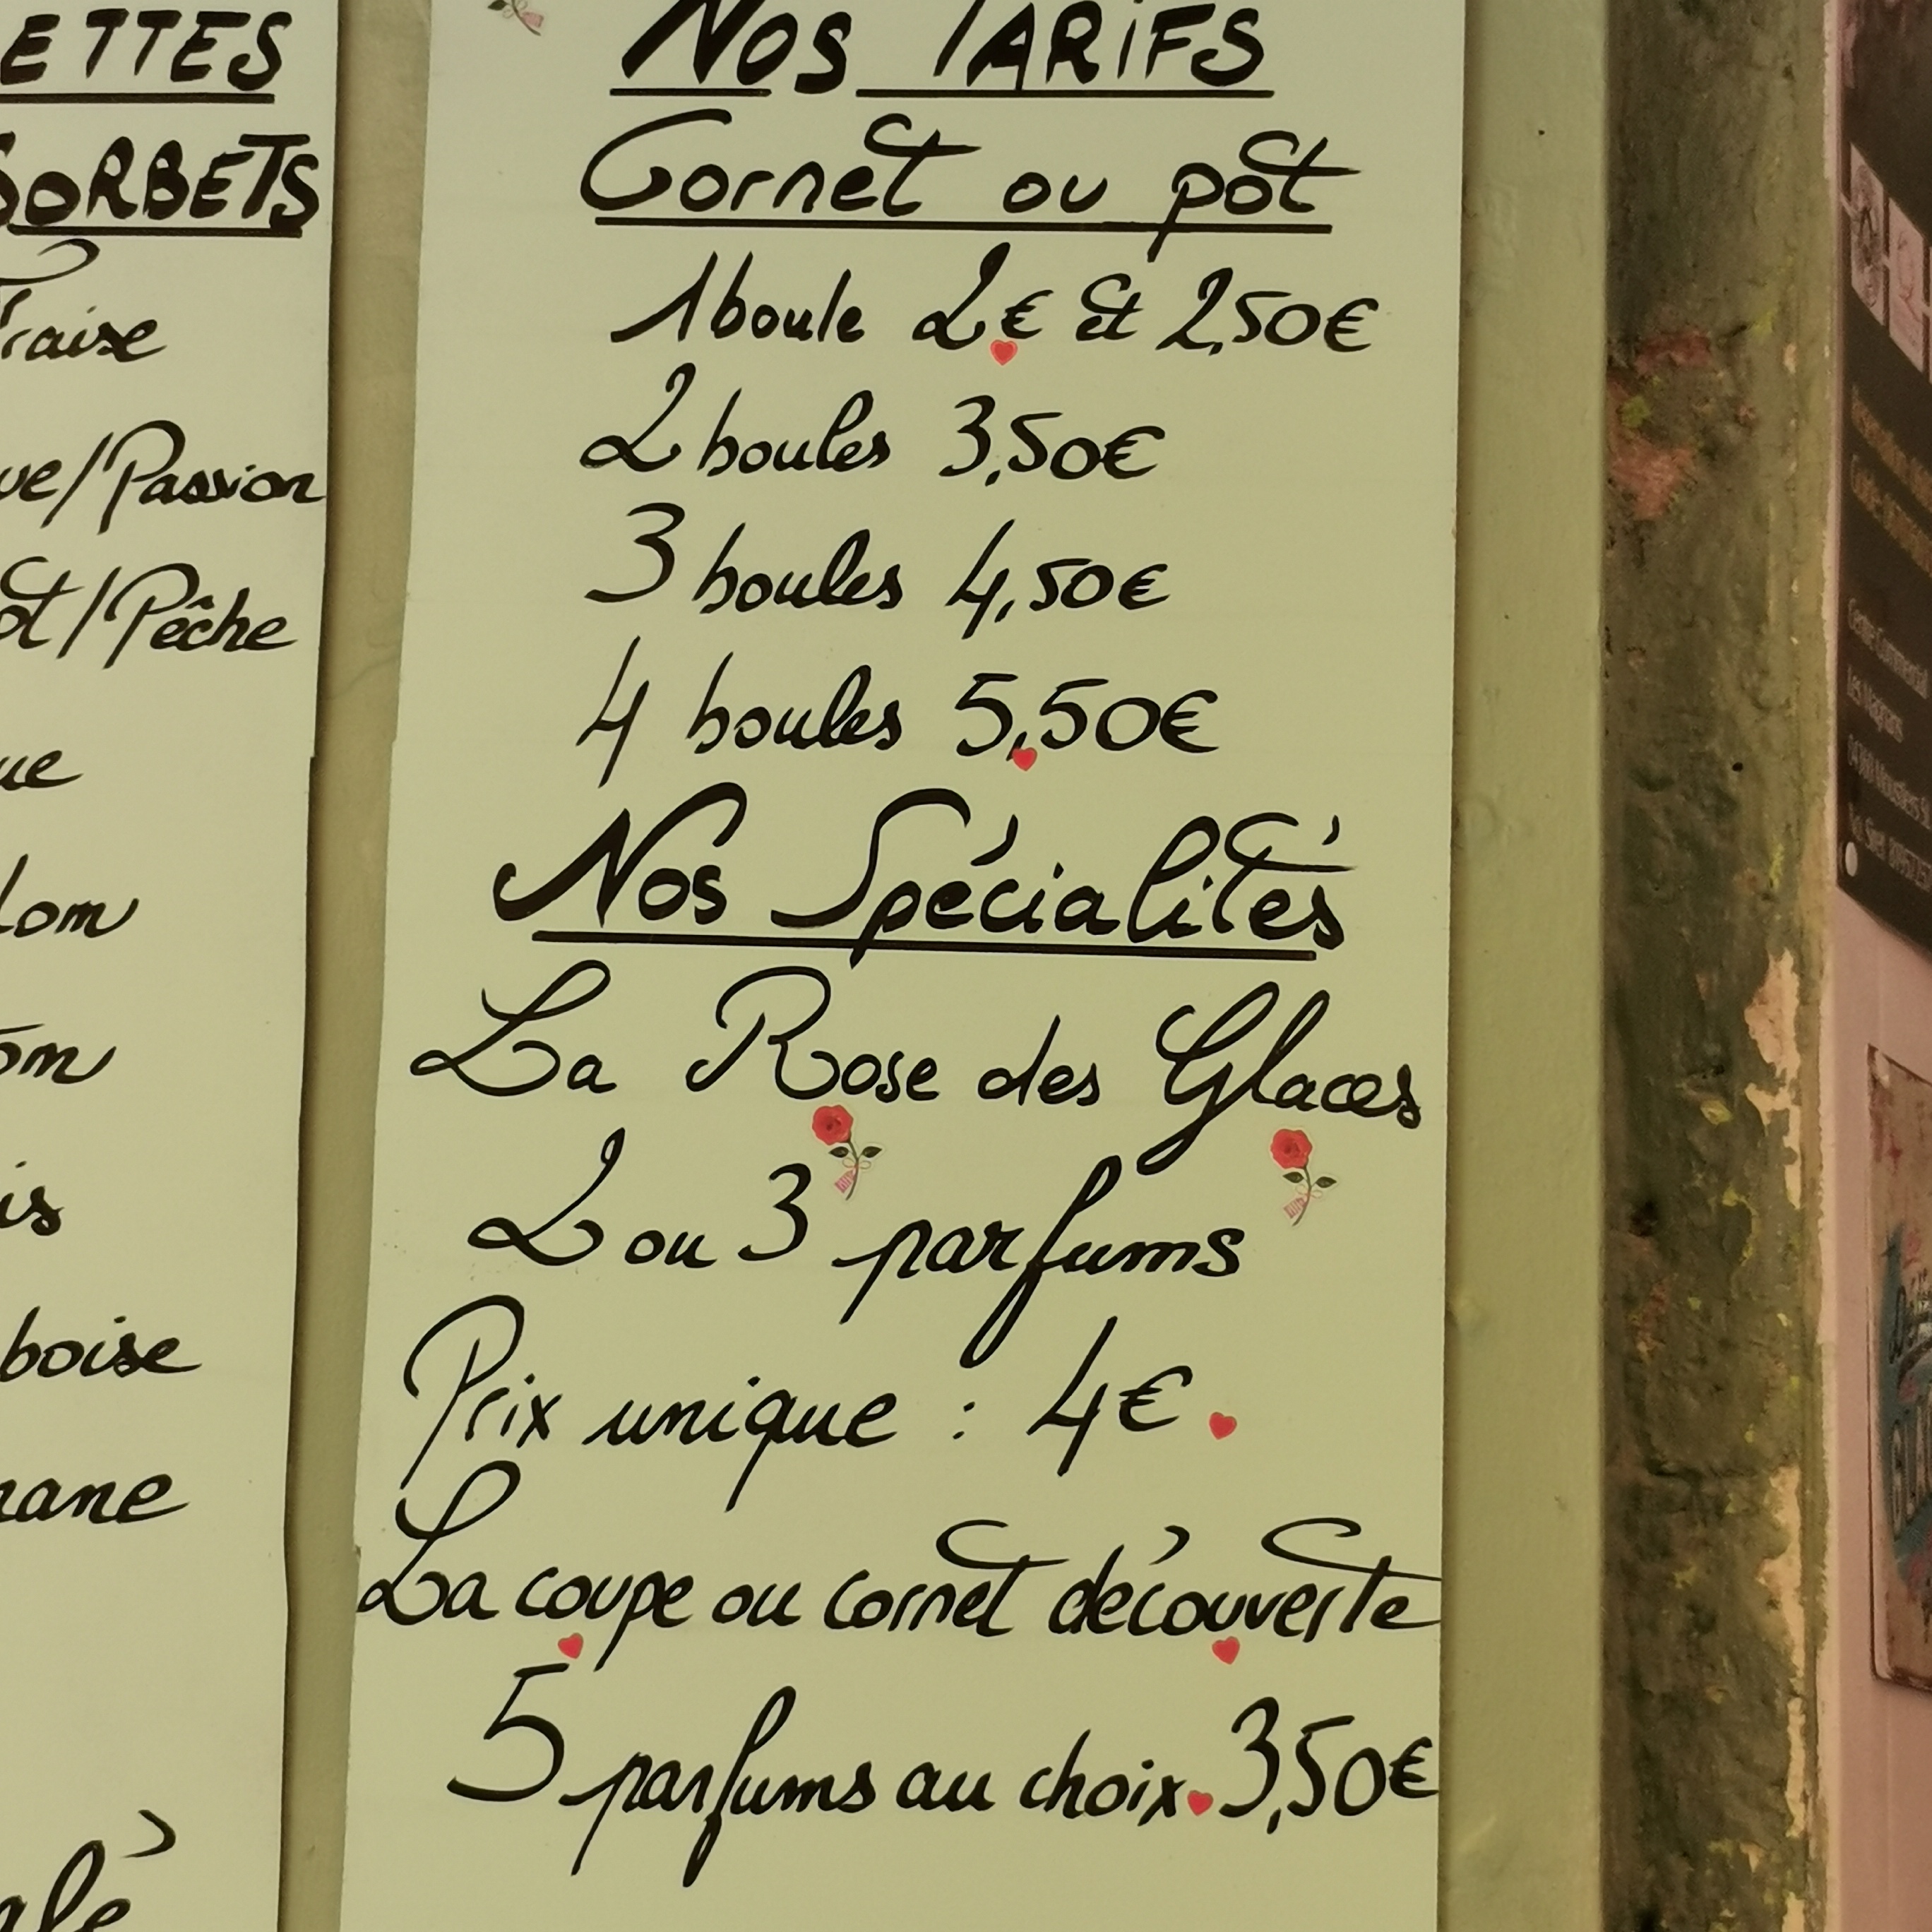 ETTES
SORBETS
Fraise
ve/Passion
ot/Pêche
ue
lom
om
is
boise
nane
alé
Nos TARiFS
Cornet ou pôt
1 boule 2€ et 2,50€
2 boules 3,50€
3 boules 4,50€
4 boules 5,50€
Nos Spécialités
La Rose des Glaces
2 ou 3 parfums
Prix unique : 4€
La coupe ou cornet découverte
5 parfums au choix 3,50€
Centre Commercial